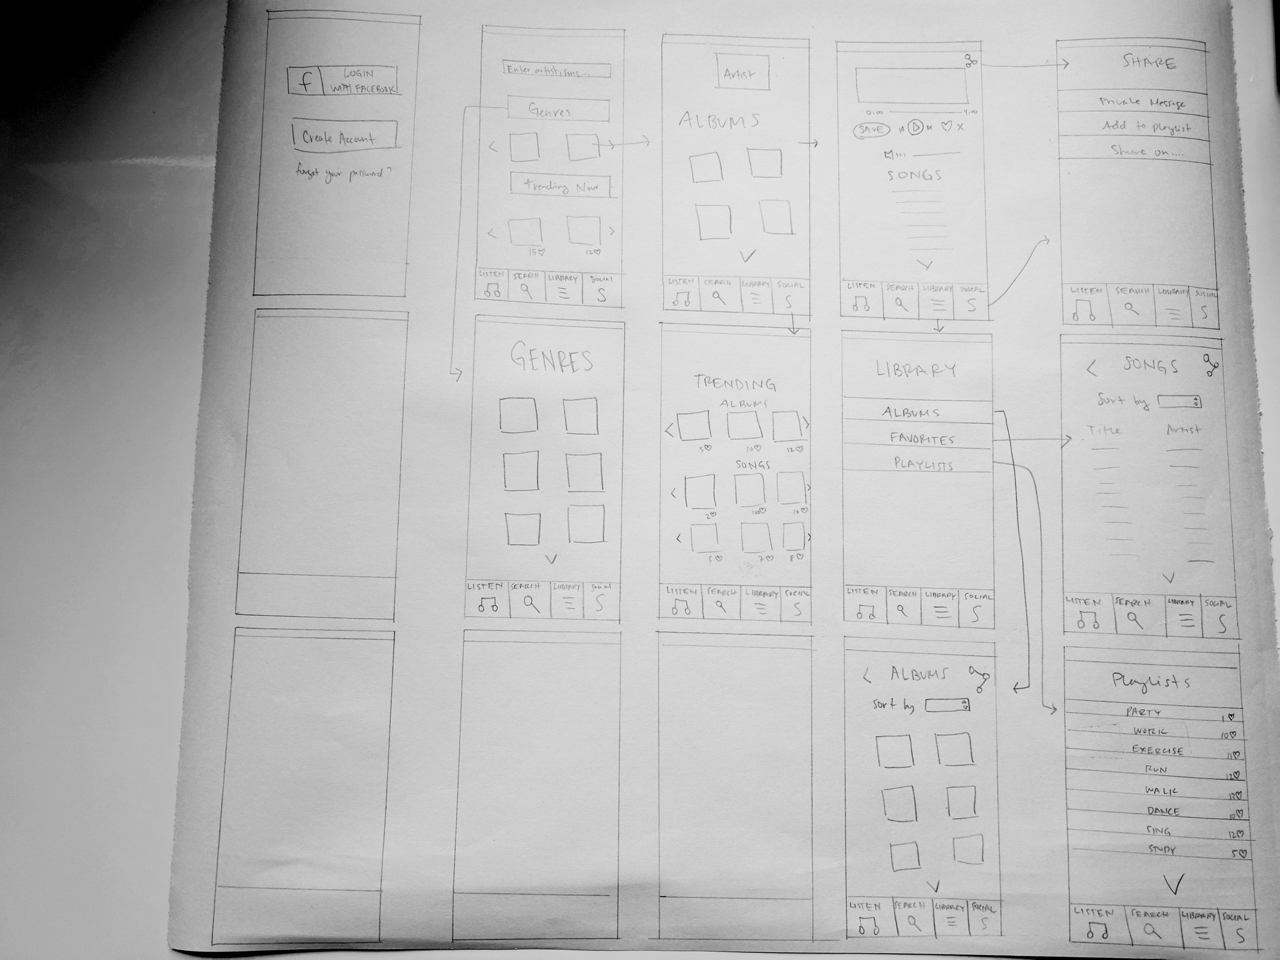 f LOGIN
WITH FACEBOOK
Create Account
forgot your password?
Enter artist, ...
Genres
Trending Now
15♡ 12♡
LISTEN SEARCH LIBRARY SOCIAL
S
Artist
ALBUMS
LISTEN SEARCH LIBRARY SOCIAL
S
0:00 4:00
SAVE
SONGS
LISTEN SEARCH LIBRARY SOCIAL
S
SHARE
Private Message
Add to playlist
Share on....
LISTEN SEARCH LIBRARY SOCIAL
S
GENRES
LISTEN SEARCH LIBRARY Social
S
TRENDING
ALBUMS
5♡ 10♡ 12♡
SONGS
2♡ 100♡ 10♡
5♡ 7♡ 8♡
LISTEN SEARCH LIBRARY SOCIAL
S
LIBRARY
ALBUMS
FAVORITES
PLAYLISTS
LISTEN SEARCH LIBRARY SOCIAL
S
< SONGS
Sort by
Title Artist
LISTEN SEARCH LIBRARY SOCIAL
S
< ALBUMS
Sort by
LISTEN SEARCH LIBRARY SOCIAL
S
Playlists
PARTY 1♡
WORK 10♡
EXERCISE 11♡
RUN 12♡
WALK 12♡
DANCE 10♡
SING 12♡
STUDY 5♡
LISTEN SEARCH LIBRARY SOCIAL
S